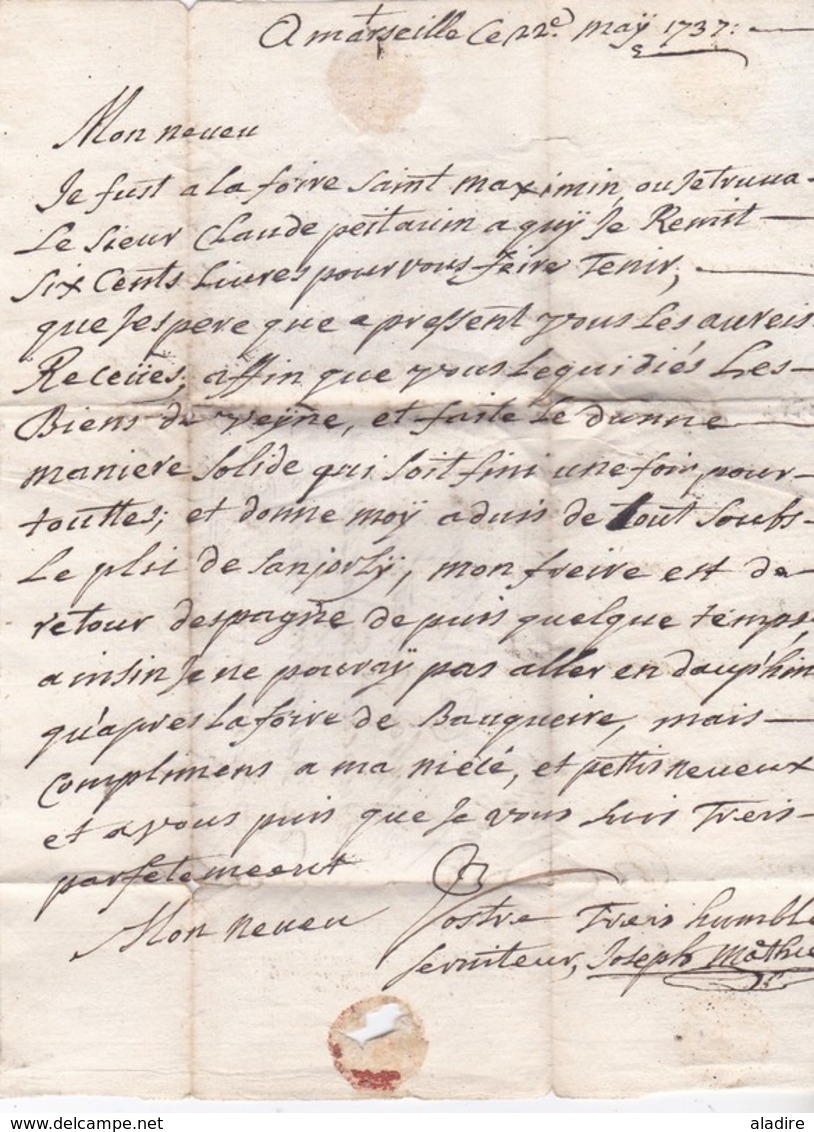 A marseille Ce 22e. maÿ 1737:
Mon neueu
Je fust a la foire Saint maximin, ou Je truua
Le Sieur Claude peitauin a quÿ Je Remit
Six Cents Liures pour vous feire Tenir,
que Jespere que a pressent vous Les aureis
Receües, affin que vous Lequidiés Les
Biens de Veÿne, et faite Le dunne
maniere Solide qui Soit fini une foir, pour
touttes; et donne moÿ aduis de tout Soubs
Le pli de, mon freire est de
retour despagne de puis quelque temps
ainsin Je ne pouraÿ pas aller en dauphin
qu'apres La foire de Bauqueire, mais
Complimens a ma niécé, et pettis neueux
et a vous puis que Je vous suis Treis
parfetemeent
Mon neueu Vostre Treis humble
Seruiteur, Joseph Mathie
aladire